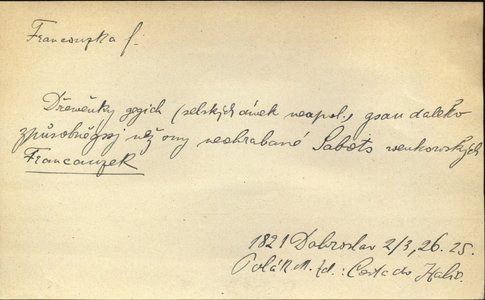 Francouzka f.
Dřewěnky gegich (selských dívek neapol.) gsau daleko
způsobněgssj než ony neohrabané Sabots wenkowských
Francauzek
1821 Dobroslav 2/3, 26. 25.
Polák M. Zd.: Cesta do Italie.